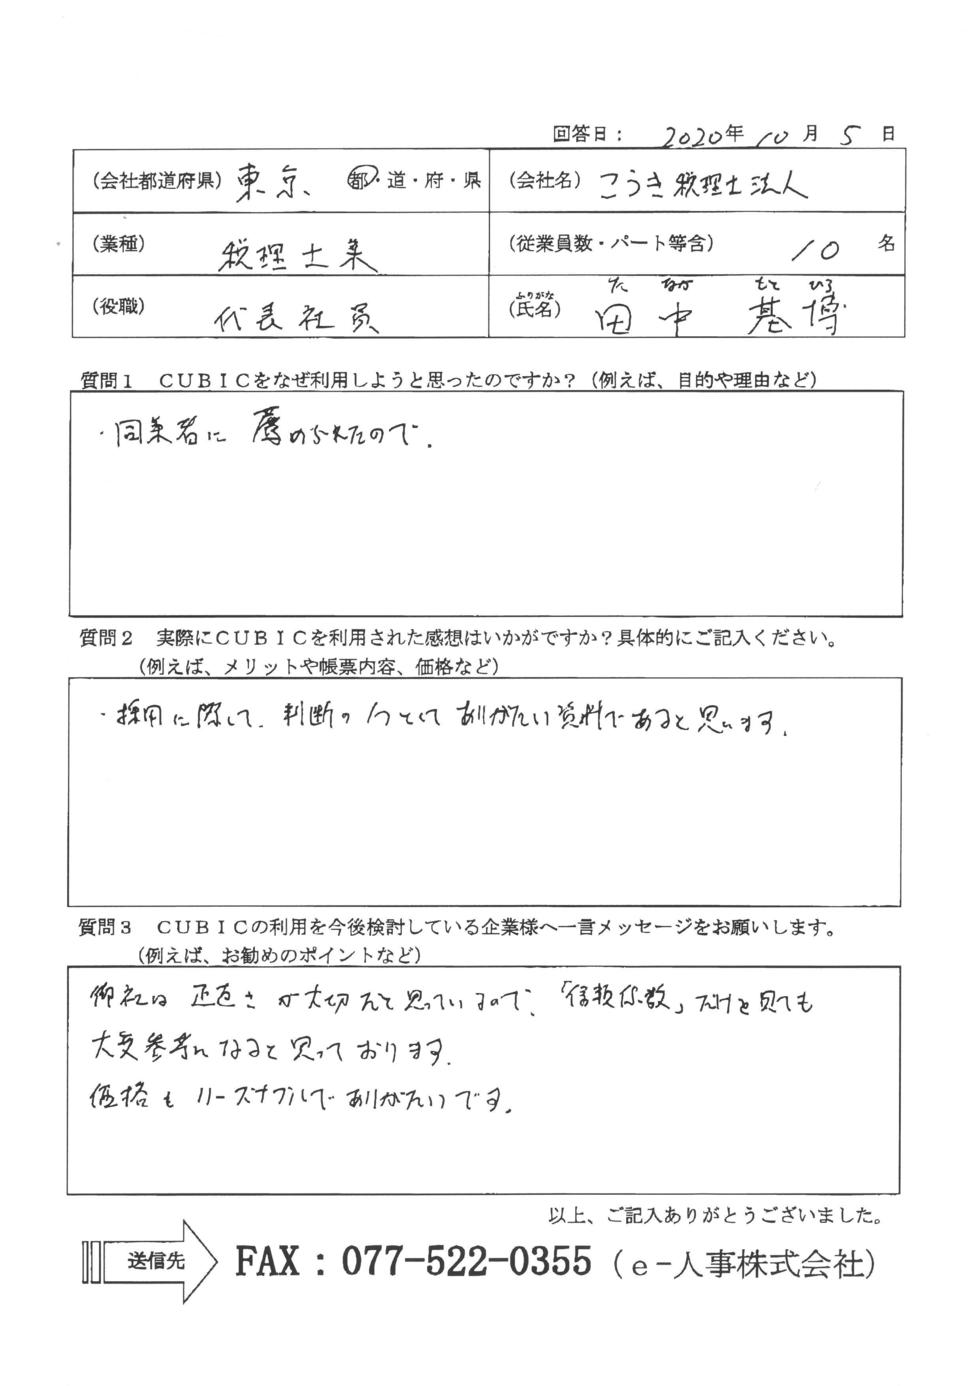 回答日： 2020年 10月 5日
(会社都道府県) 東京 都・道・府・県 (会社名) こうき税理士法人
(業種) 税理士業 (従業員数・パート等含) 10 名
た なか もと ひろ
(役職) 代表社員 ふりがな (氏名) 田中 基博
質問１ ＣＵＢＩＣをなぜ利用しようと思ったのですか？（例えば、目的や理由など）
・同業者に薦められたので.
質問２ 実際にＣＵＢＩＣを利用された感想はいかがですか？具体的にご記入ください。
（例えば、メリットや帳票内容、価格など）
・採用に際して、判断の1つとして ありがたい資料であると思います.
質問３ ＣＵＢＩＣの利用を今後検討している企業様へ一言メッセージをお願いします。
（例えば、お勧めのポイントなど）
御社は 正直さ が大切だと思っているので、「信頼係数」だけを見ても
大変参考になると思っております.
価格も リーズナブルで ありがたいです.
以上、ご記入ありがとうございました。
送信先 FAX：077-522-0355（e-人事株式会社）